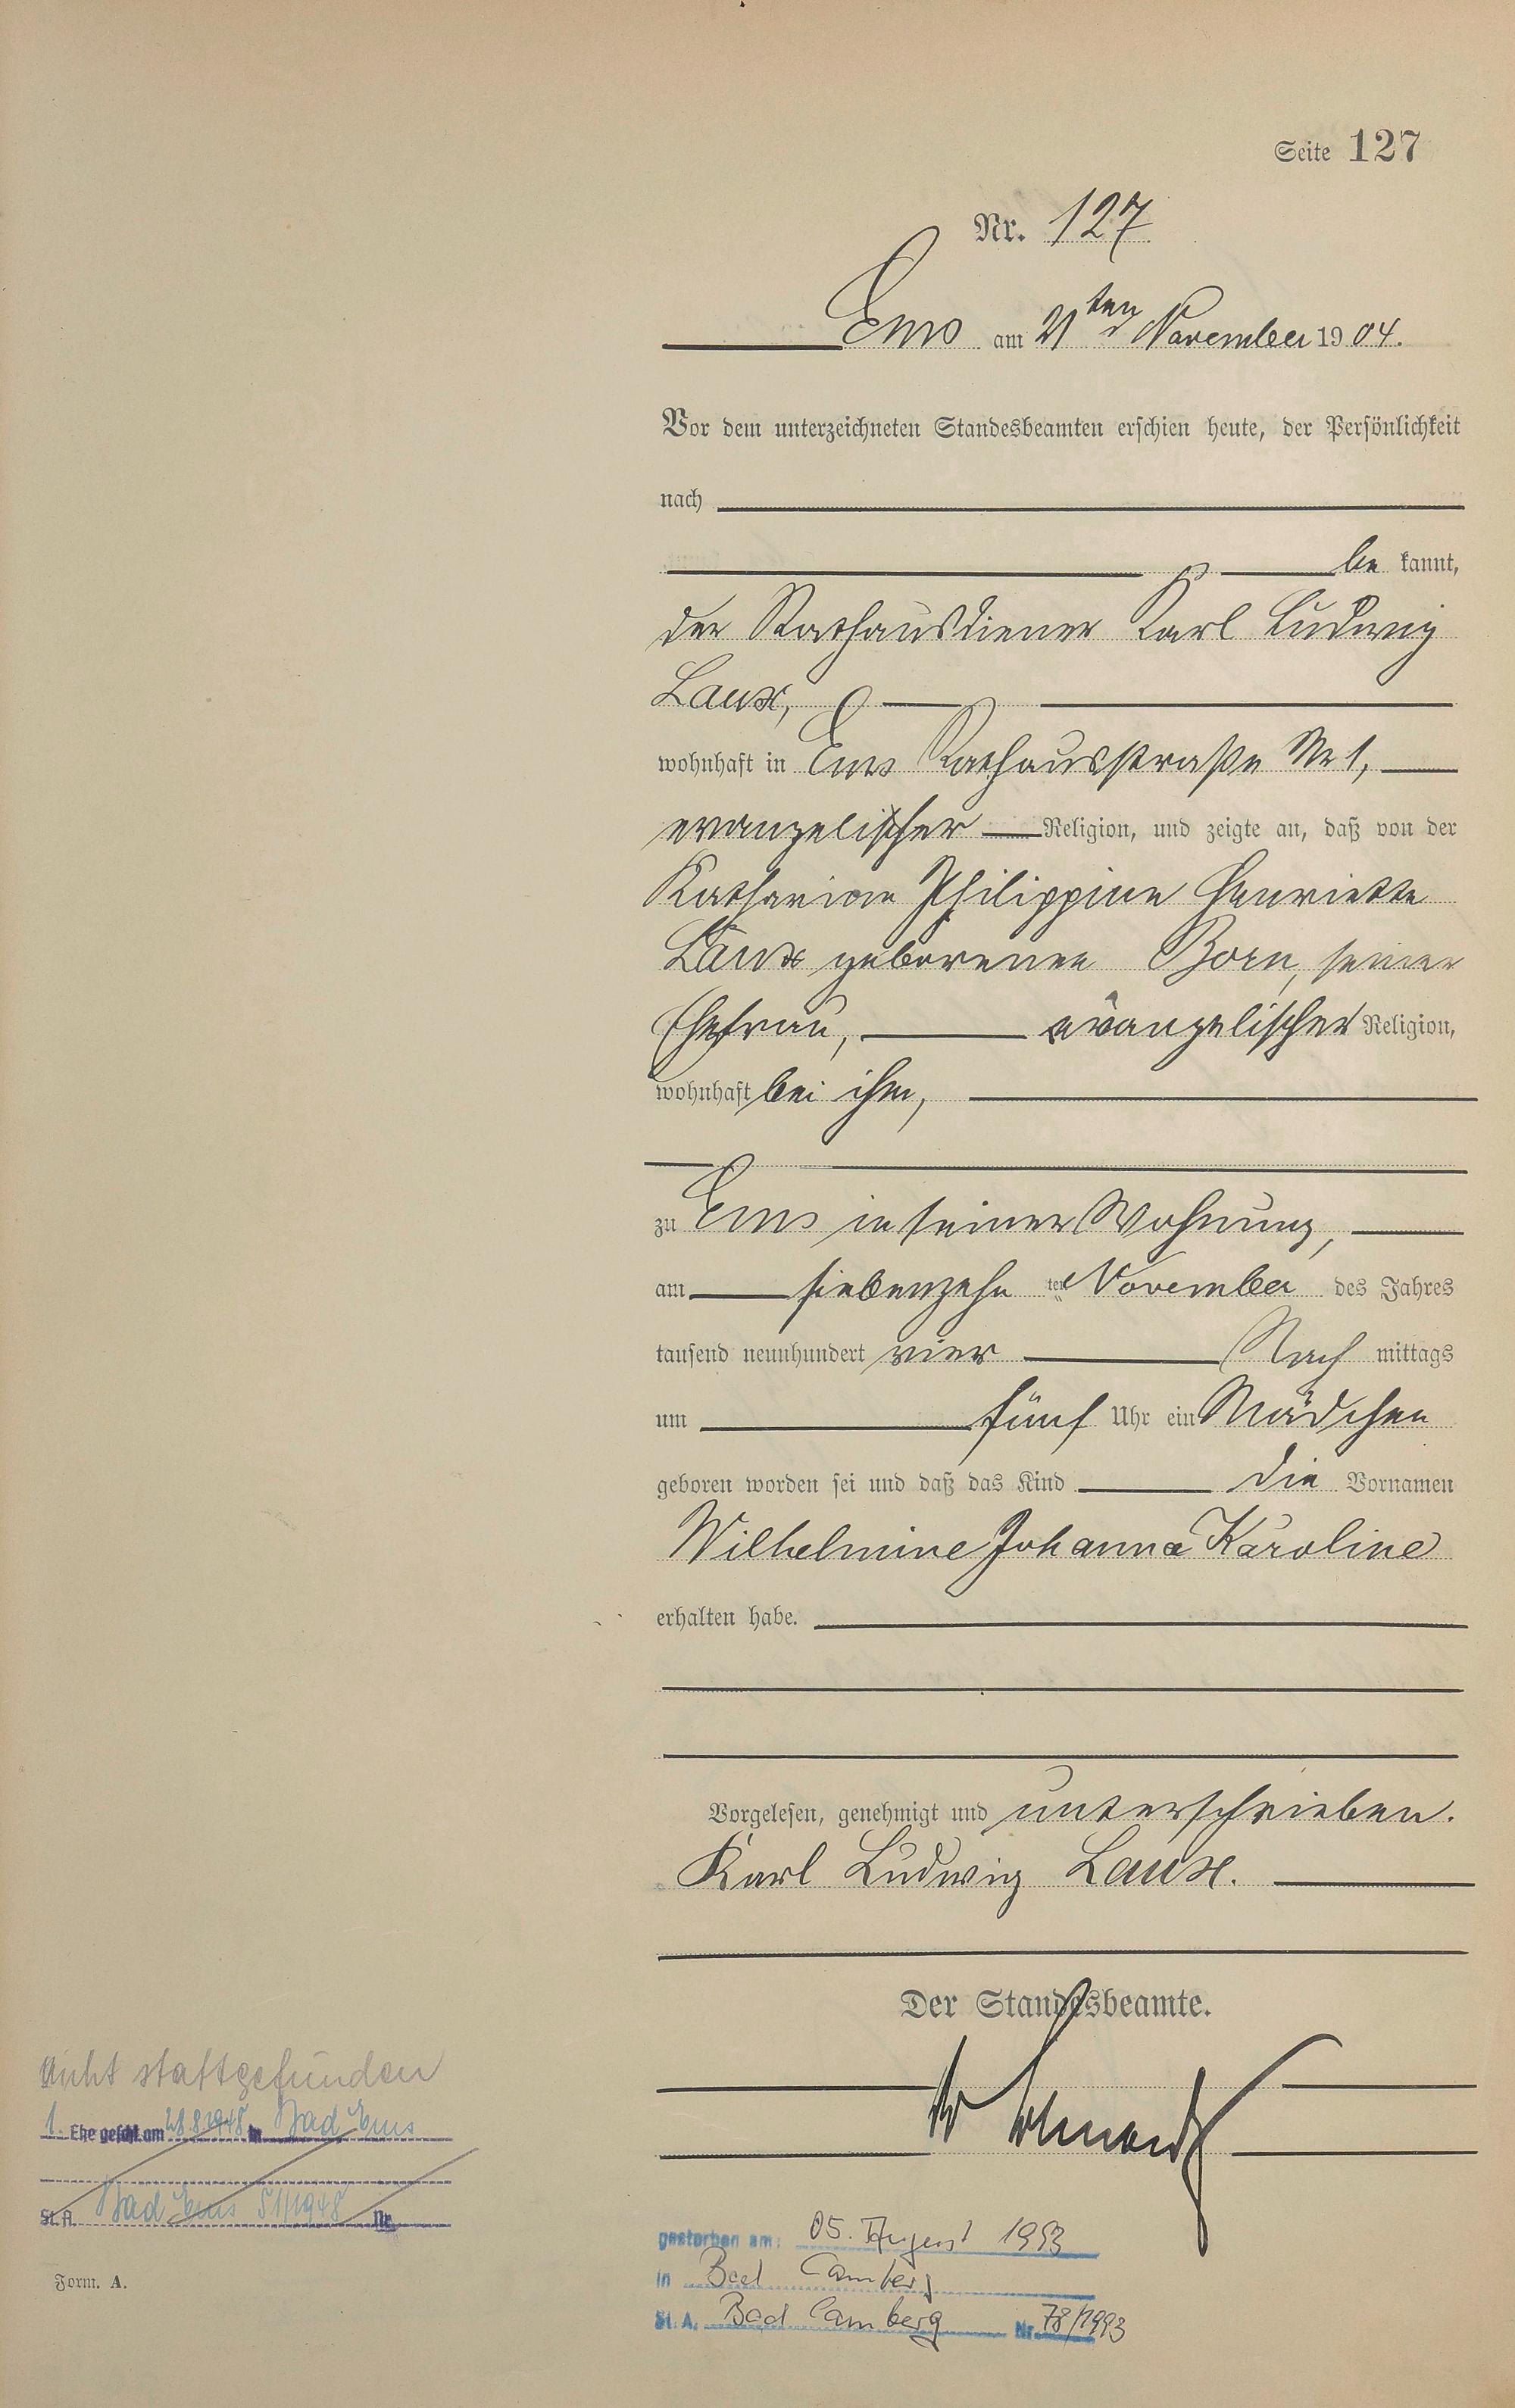 Seite 127
Nr. 127
Ems am 21ten November 1904.
Vor dem unterzeichneten Standesbeamten erschien heute, der Persönlichkeit
nach
be kannt,
der Rathausdiener Karl Ludwig
Laux,
wohnhaft in Ems Rathausstraße Nr 1,
evangelischer Religion, und zeigte an, daß von der
Katharine Philippine Henriette
Laux geborenen Born, seiner
Ehefrau, evangelischer Religion,
wohnhaft bei ihm,
zu Ems in seiner Wohnung,
am siebenzehn ten November des Jahres
tausend neunhundert vier Nach mittags
um fünf Uhr ein Mädchen
geboren worden sei und daß das Kind die Vornamen
Wilhelmine Johanna Karoline
erhalten habe.
Vorgelesen, genehmigt und unterschrieben.
Karl Ludwig Laux.
Der Standesbeamte.
Nicht stattgefunden
1. Ehe geschl. am 28.8.1948 in Bad Ems
St. A. Bad Ems 51/1948 Nr.
gestorben am: 05. August 1993
in Bad Camberg
St. A. Bad Camberg Nr. 78/1993
Form. A.